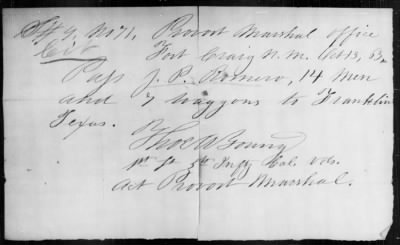 No 71, Provost Marshal office
Cit Fort Craig N. M. Oct 13, 63
Pass J. P. Romero, 14 Men
and 7 Waggons to Franklin
Texas.
Thos Young
1st Lt 5th Infy Cal. Vols.
Act Provost Marshal.